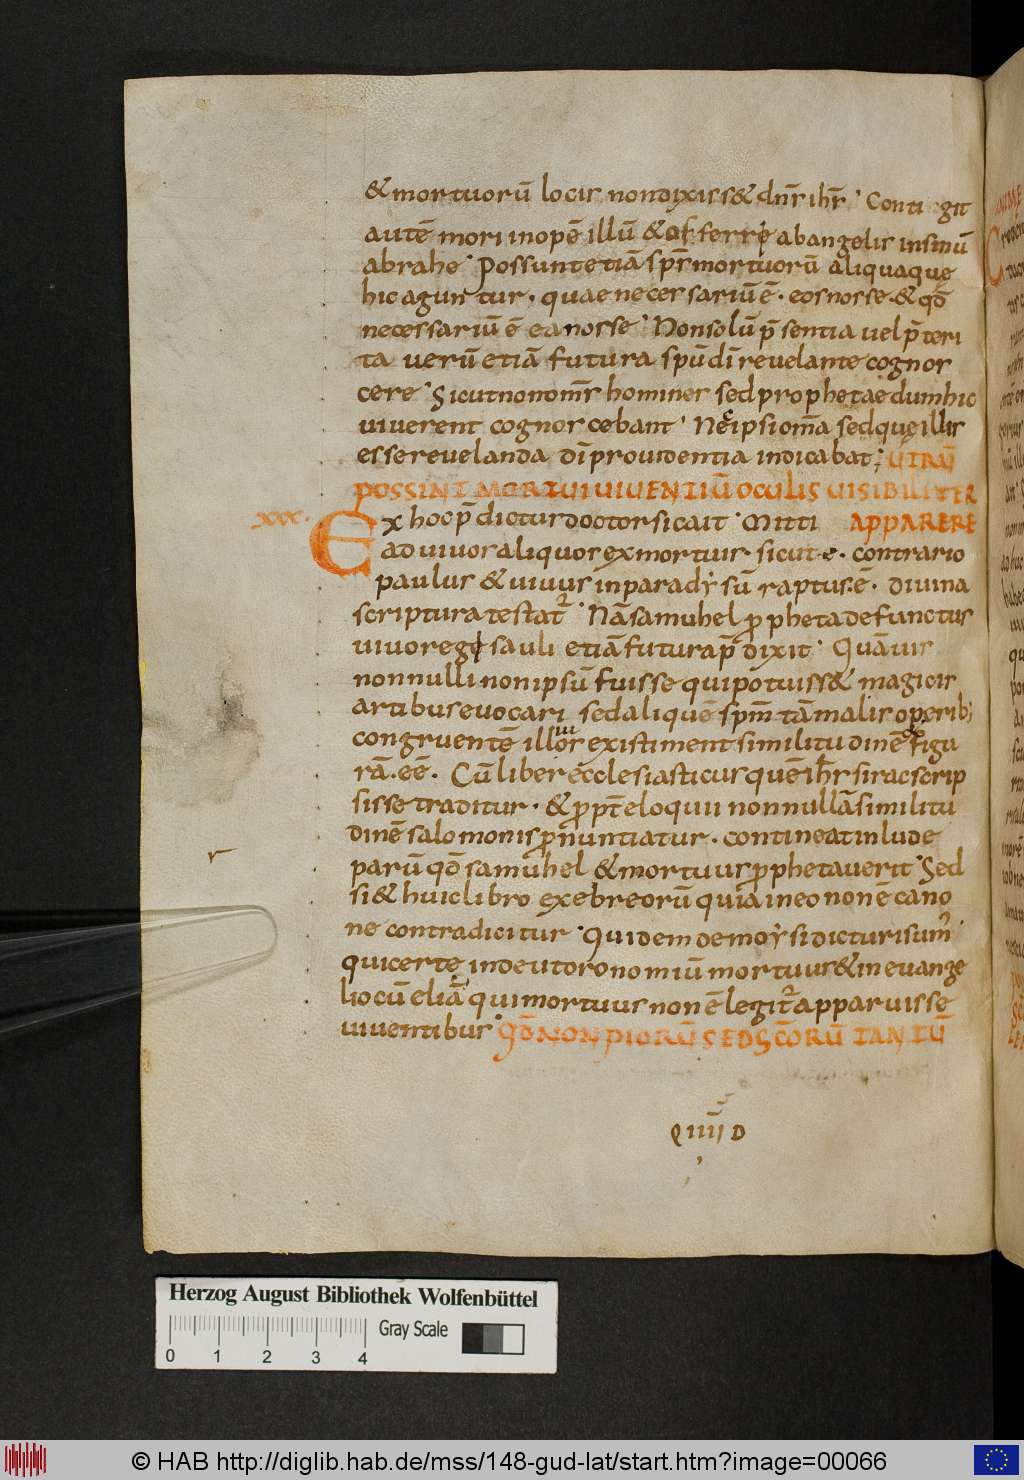 & mortuorū locis non dixiss& dn̄r ihr̄ · Conti git
autē mori inopē illū & offerre ab angelis in sinū
abrahe · Possunt etiā sp̄s mortuorū aliqua que
hic aguntur · quae necessariū ē · eos nosse · & qđ
necessariū ē ea nosse · Non solū p̄sentia vel p̄teri
ta verū etiā futura spū dī revelante cognos
cere · Sicut non om̄s homines sed prophetae dum hic
viverent cognoscebant · Nec ipsi om̄a sed que illis
esse revelanda dī providentia indicabat ; UTRŪ
POSSINT MORTUI VIVENTIŪ OCULIS VISIBILITER
xxx. Ex hoc p̄dictus doctor sic ait · Mitti APPARERE
ad vivos aliquos ex mortuis sicut · e · contrario
paulus & vivus in paradẏsū raptus · ē · divina
scriptura testat᷑ · Nā samuhel ꝓpheta defunctus
vivo regi sauli etiā futura p̄dixit · Quāvis
nonnulli non ipsū fuisse qui potuiss& magicis
artibus evocari sed aliquē spm̄ tā malis operib;
congruentē illorū existiment similitudinē figu
rā · eē · Cū liber ecclesiasticus quē ihr̄ sirac scrip
sisse traditur · & ꝓpt̄ eloquii nonnullā similitu
dinē salomonis ꝓnuntiatur · contineat in lude
parū qđ samuhel & mortuus ꝓphetaverit · Sed
si & huic libro ex ebreorū quia in eo non ē cano
ne contradicitur · Quid em de moẏsi dicturi sum᷒
qui certe in deutoronomiū mortuus & in evange
lio cū eliā qui mortuus non ē legit᷑ apparuisse
viventibus · QĐ NON PIORŪ SED SC̄ORŪ TANTŪ
Q IIII D
Herzog August Bibliothek Wolfenbüttel
Gray Scale
0 1 2 3 4
© HAB http://diglib.hab.de/mss/148-gud-lat/start.htm?image=00066